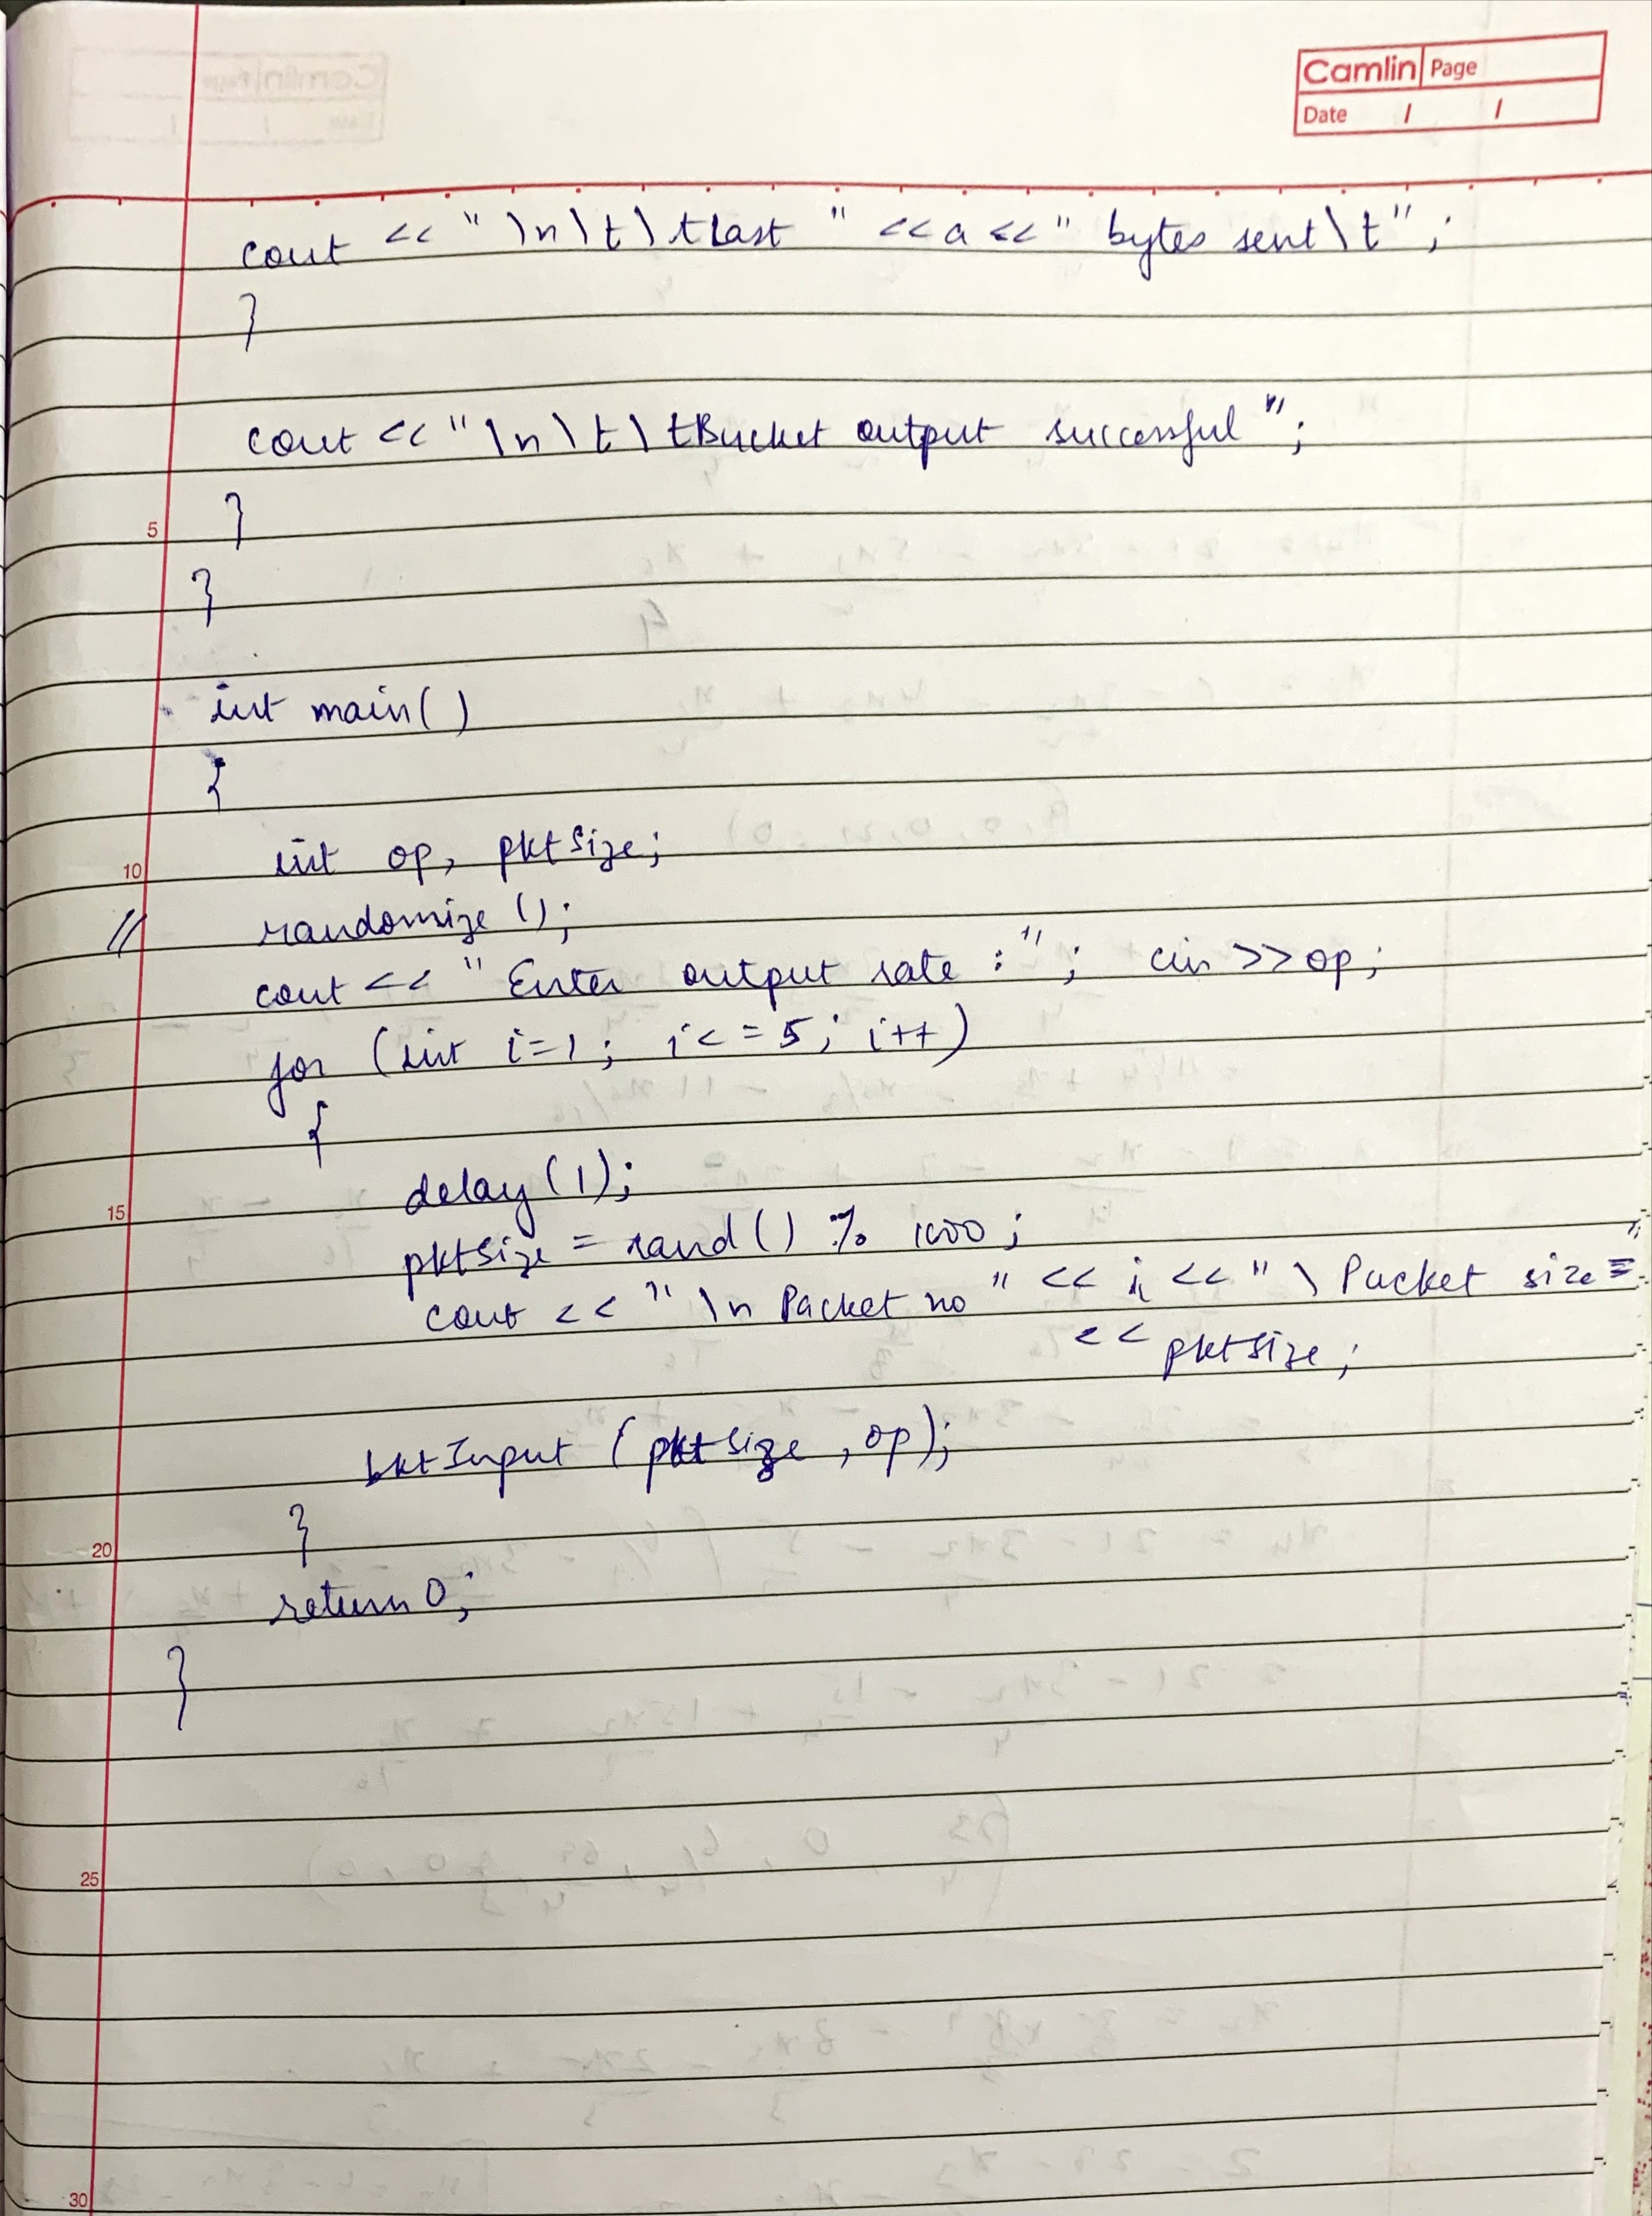 Camlin Page
Date / /
cout << "\n\t\tLast " << a << " bytes sent\t";
}
cout << "\n\t\tBucket output successful";
}
}
int main()
{
int op, pktSize;
// randomize ();
cout << "Enter output rate :"; cin >> op;
for (int i=1; i<=5; i++)
{
delay(1);
pktSize = rand() % 1000;
cout << "\n Packet no " << i << " \ Packet size="
<< pktSize;
bktInput (pktSize, op);
}
return 0;
}
5
10
15
20
25
30